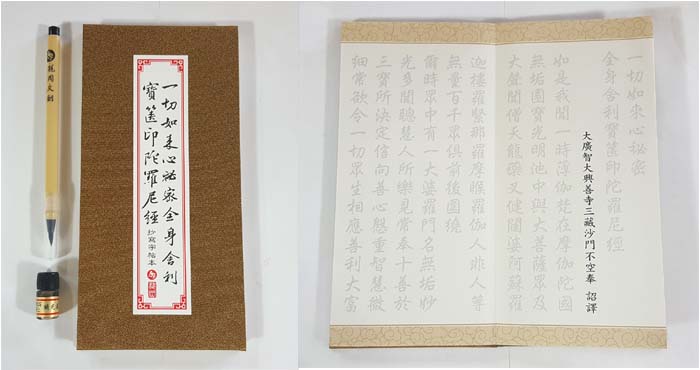 一切如來心祕密全身舍利
寶篋印陀羅尼經
抄寫字帖本
一切如來心祕密
全身舍利寶篋印陀羅尼經
大廣智大興善寺三藏沙門不空奉 詔譯
如是我聞一時薄伽梵在摩伽陀國
無垢園寶光明池中與大菩薩眾及
大聲聞僧天龍藥叉健闥婆阿蘇羅
迦樓羅緊那羅摩睺羅伽人非人等
無量百千眾俱前後圍繞
爾時眾中有一大婆羅門名無垢妙
光多聞聰慧人所樂見常奉十善於
三寶所決定信向善心慇重智慧微
細常欲令一切眾生相應善利大富